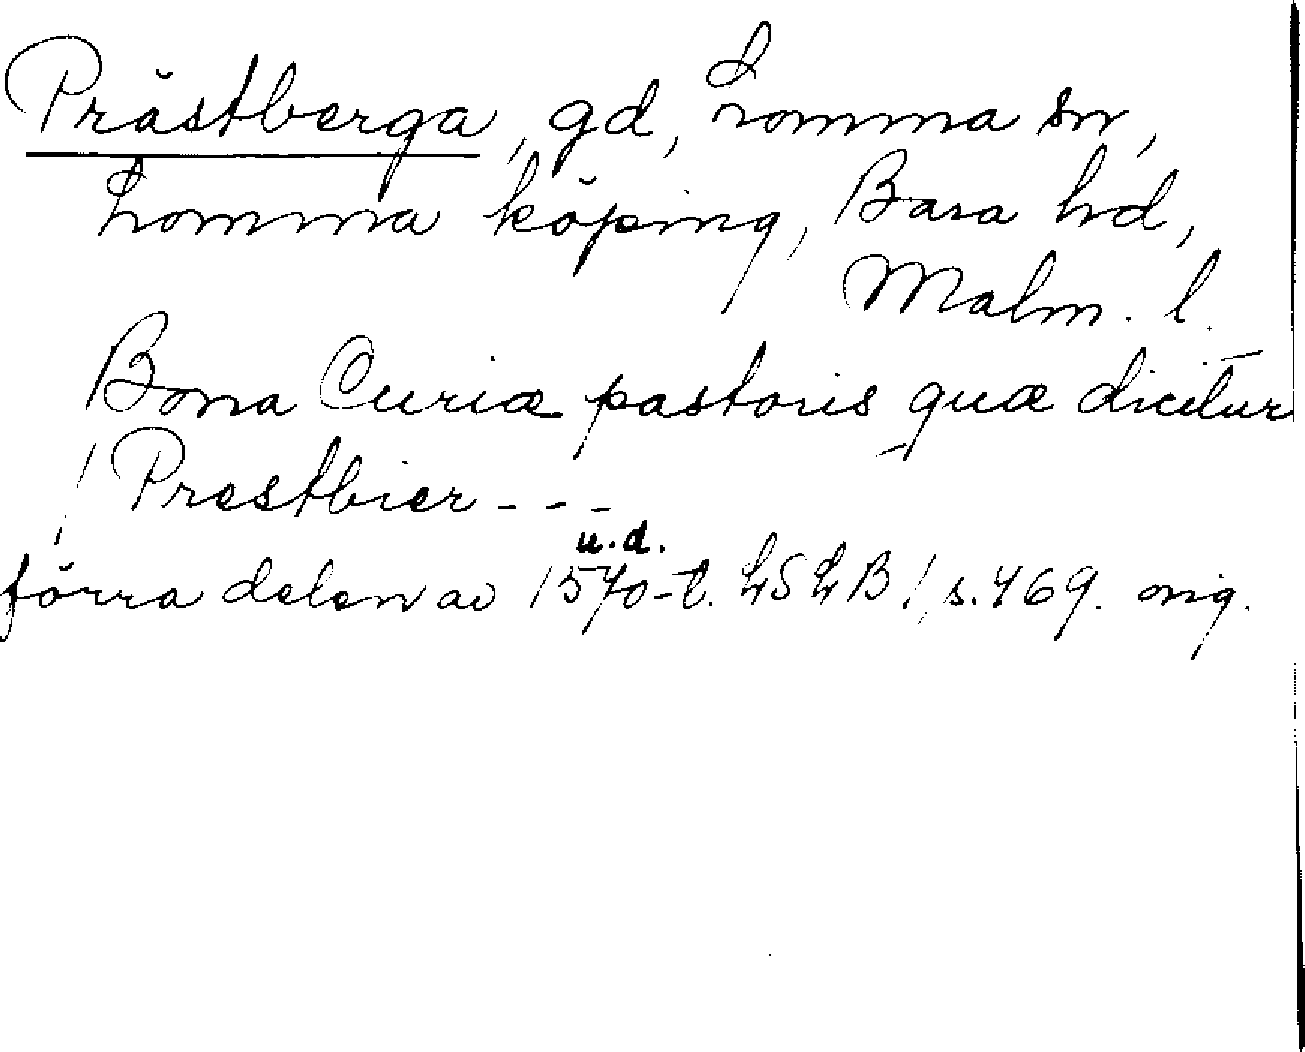 Prästberga, gd, Lomma sn,
Lomma köping, Bara hd,
Malm. l.
Bona Curiæ pastoris quæ dicitur
Prestbier - - -
u.d.
förra delen av 1570-t. LSLB 1, s. 469. orig.